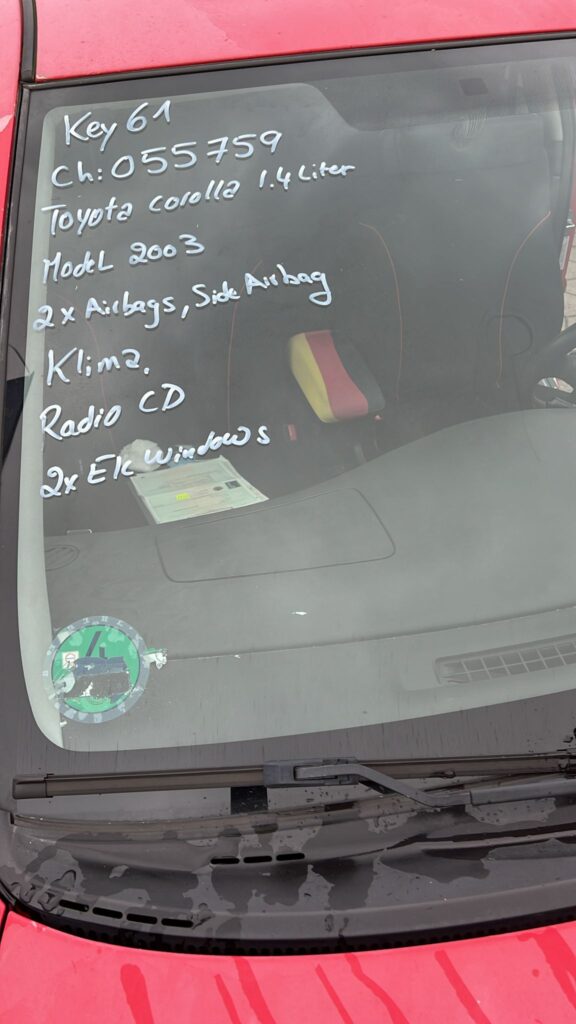 Key 61
Ch: 055759
Toyota corolla 1.4 Liter
Model 2003
2x Airbags, Side Airbag
Klima.
Radio CD
2x Ek windows
4